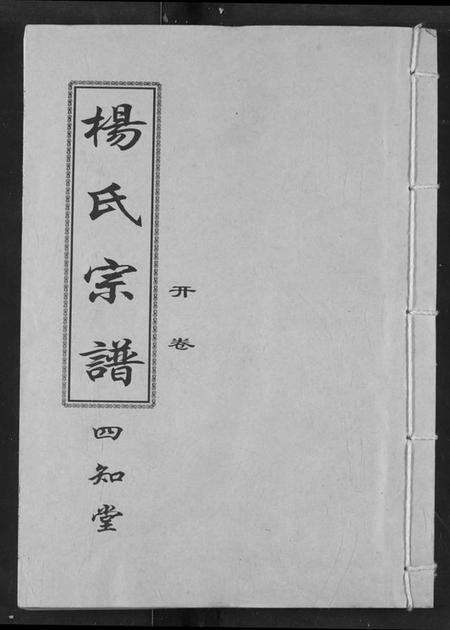 楊氏宗譜
四知堂
开卷